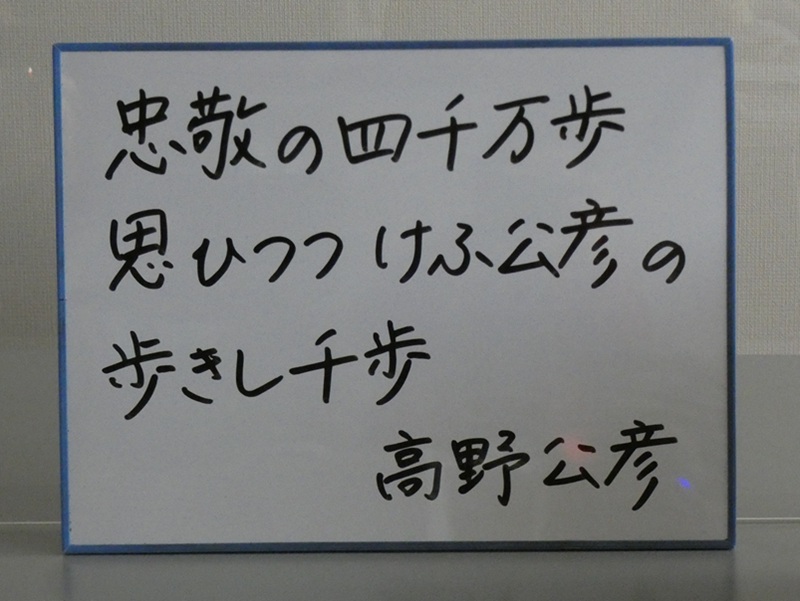 忠敬の四千万歩
思ひつつけふ公彦の
歩きし千歩
高野公彦